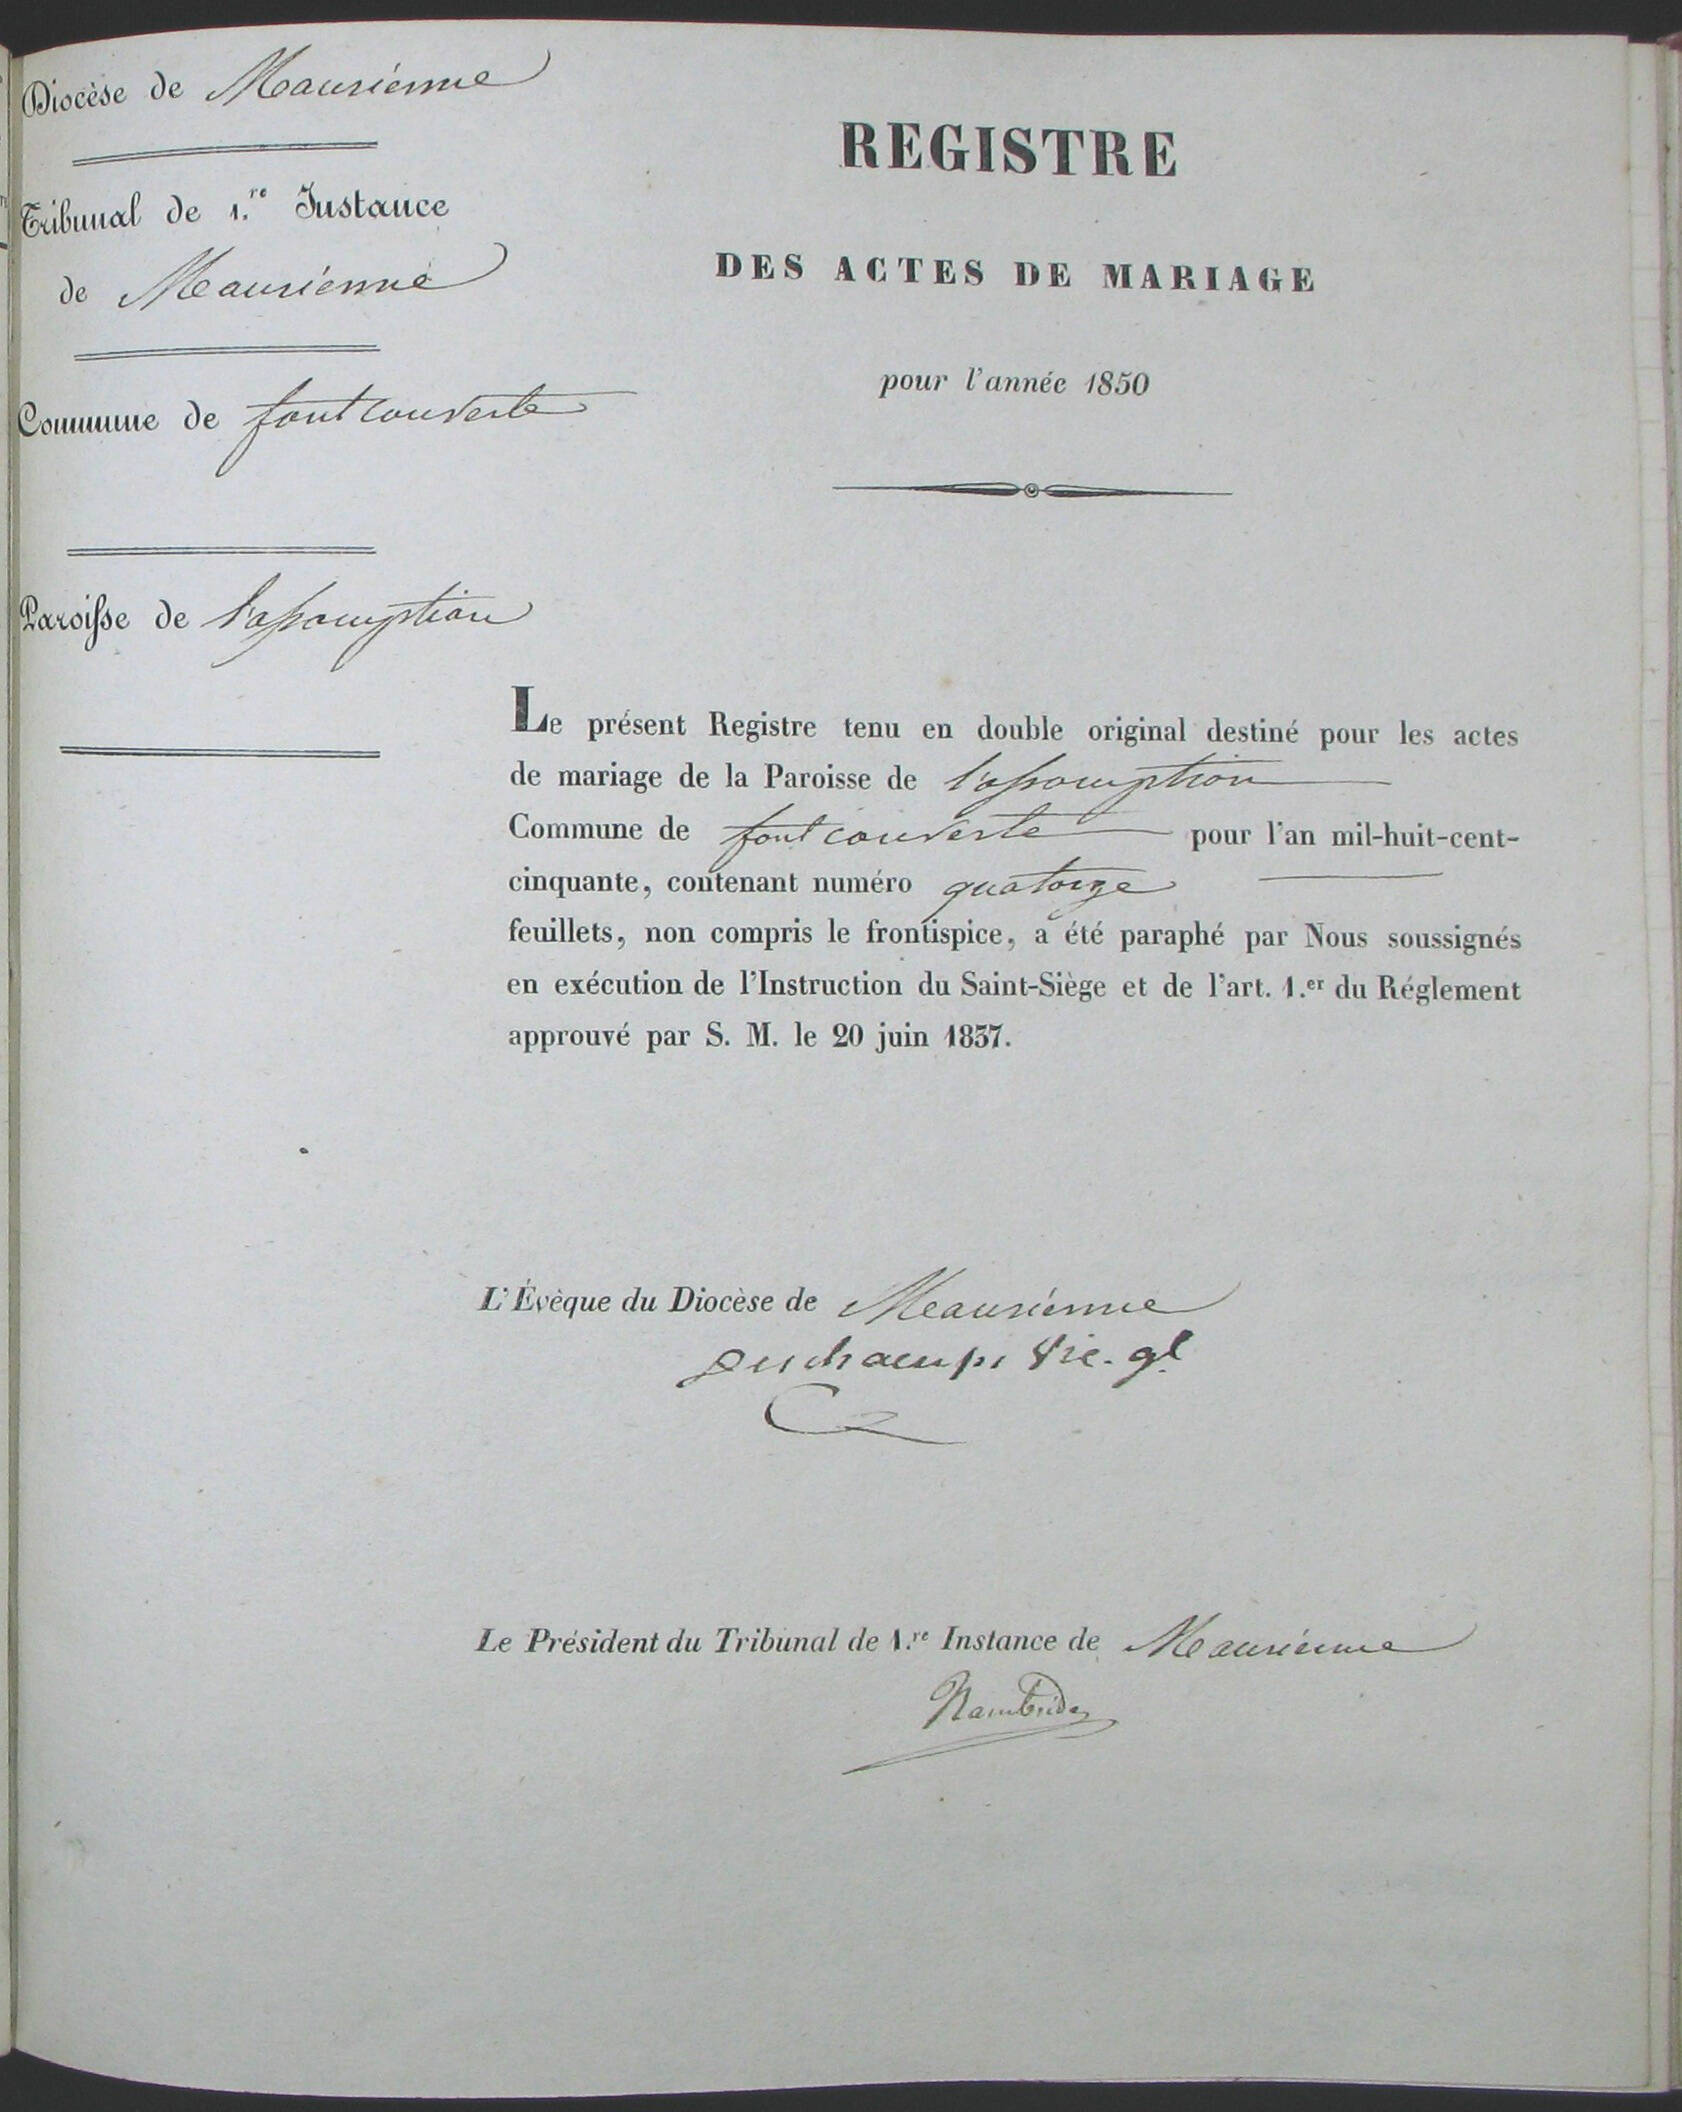 Diocèse de Maurienne
Tribunal de 1.re Instance
de Maurienne
Commune de fontcouverte
Paroisse de l'assomption
REGISTRE
DES ACTES DE MARIAGE
pour l'année 1850
Le présent Registre tenu en double original destiné pour les actes
de mariage de la Paroisse de l'assomption
Commune de fontcouverte pour l'an mil-huit-cent-
cinquante, contenant numéro quatorze
feuillets, non compris le frontispice, a été paraphé par Nous soussignés
en exécution de l'Instruction du Saint-Siège et de l'art. 1.er du Réglement
approuvé par S. M. le 20 juin 1837.
L'Évèque du Diocèse de Maurienne
Vic. gl
Le Président du Tribunal de 1.re Instance de Maurienne